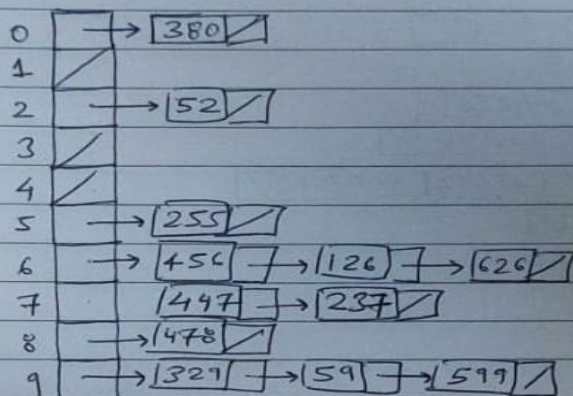 0 380
1
2 52
3
4
5 255
6 456 126 626
7 447 237
8 478
9 329 59 599